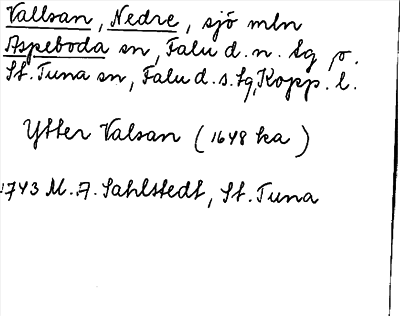 Vallsan, Nedre, sjö mln
Aspeboda sn, Falu d. n. tg o.
St. Tuna sn, Falu d. s. tg, Kopp. l.
Ytter Valsan (1648 ka)
1743 M. A. Sahlstedt, St. Tuna